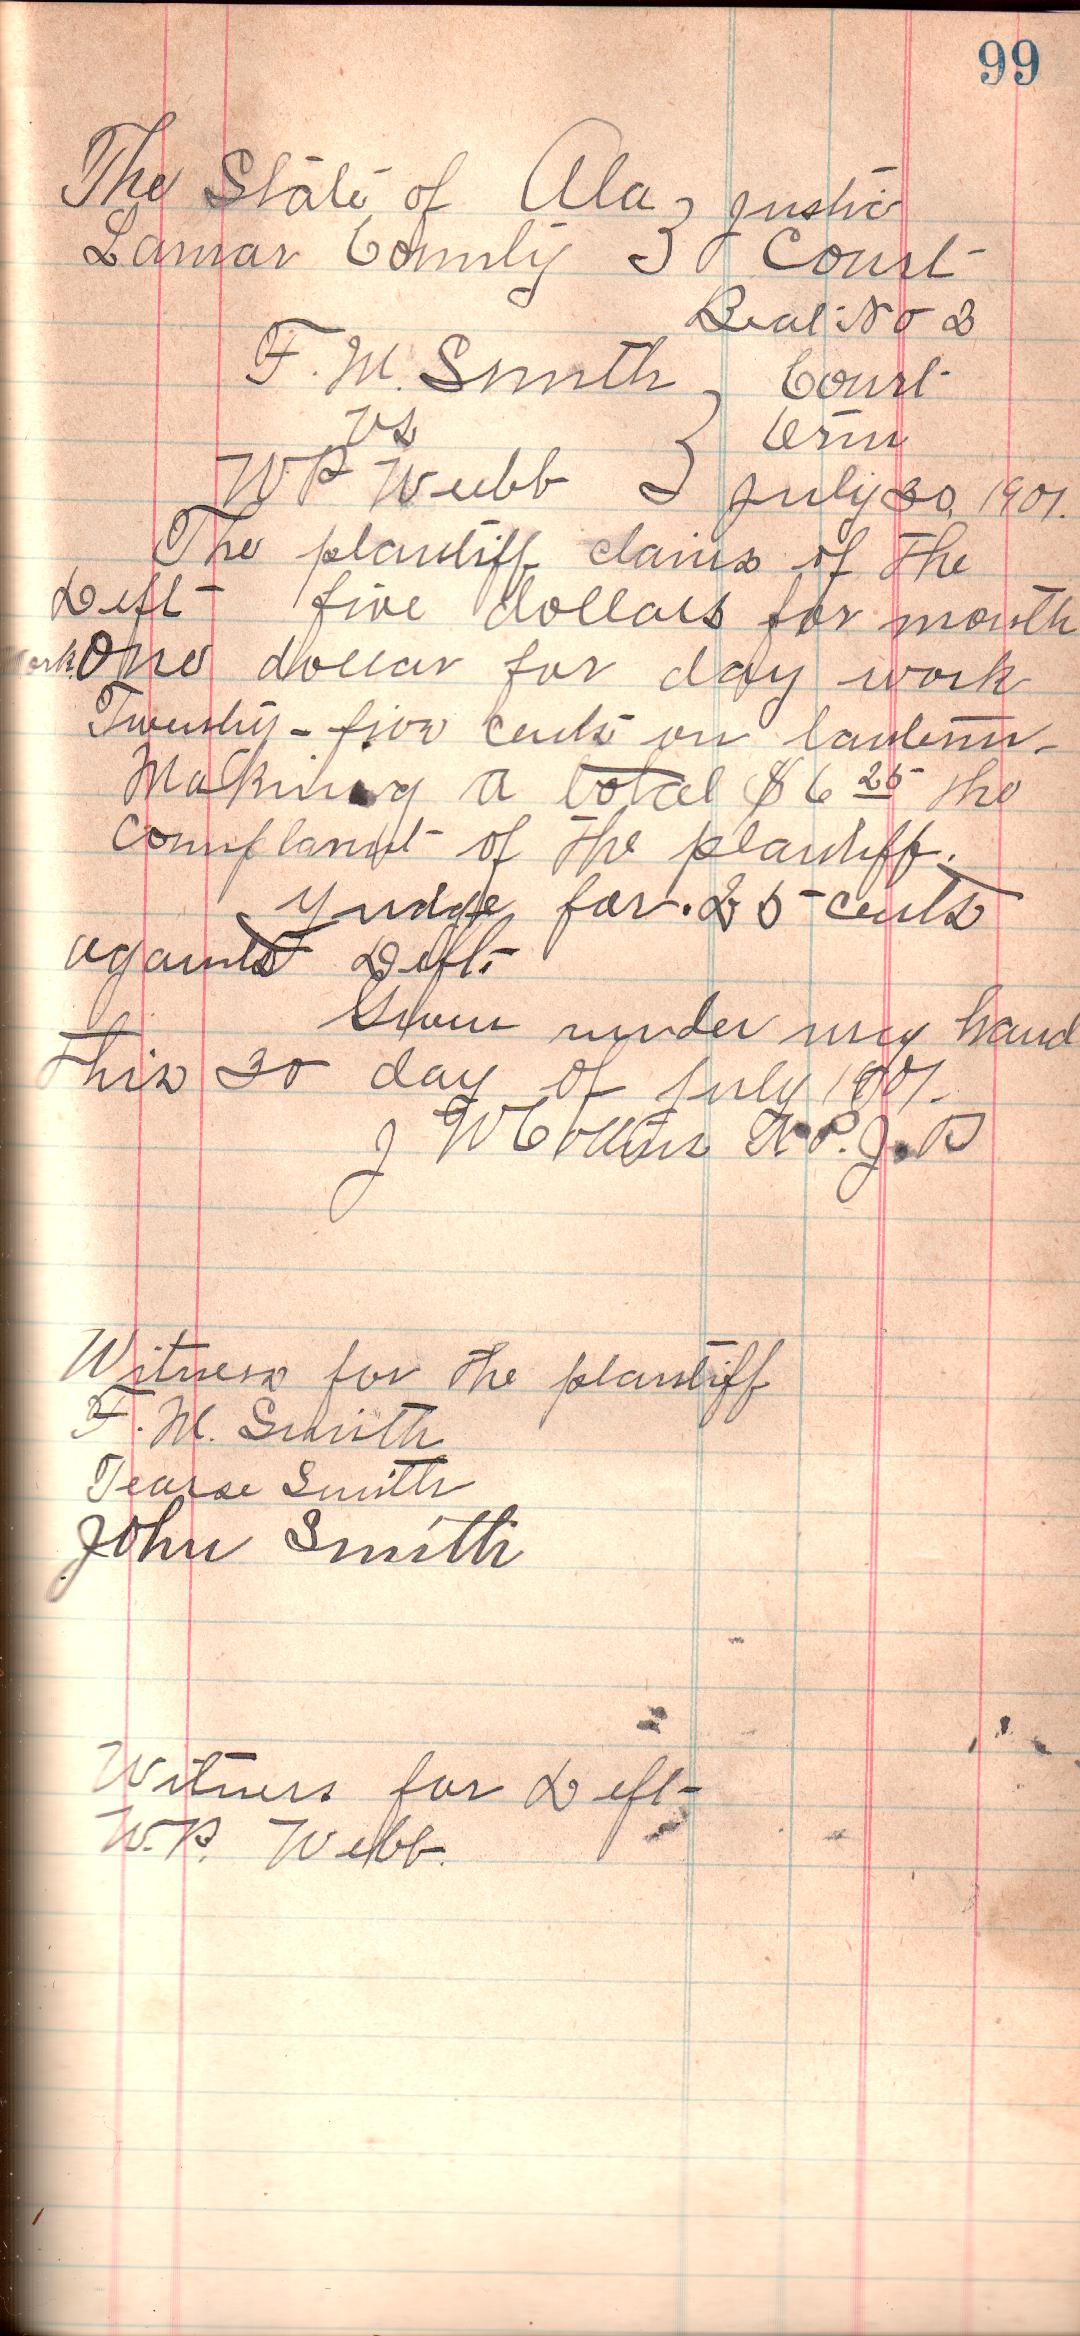 99
The State of Ala } Justic
Lamar County } Court
Beat No 2
F. M. Smith } Court
vs } term
W P Webb } July 30, 1901.
The plantiff claims of the
Deft five dollars for month
work. One dollar for day work
Twenty-five cents on lantern-
Making a total $6 25 the
complant of the plantiff.
Judge for .25 cents
against Deft.
Given under my hand
this 30 day of July 1901.
J W Collins N.P.J.P
Witness for the plantiff
F. M. Smith
Pearse Smith
John Smith
Witness for Deft
W.P. Webb.